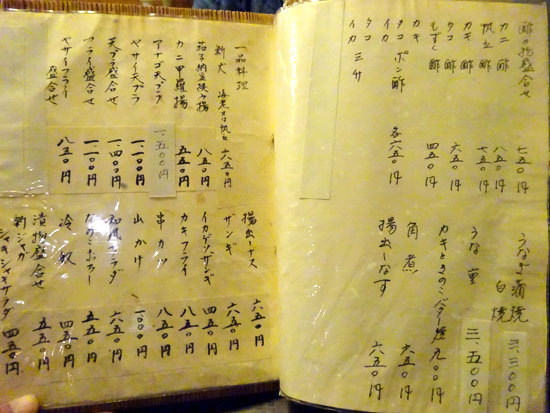 酢の物盛合せ 七五〇円
カニ酢 八五〇円
帆立酢 七五〇円
カキ酢 六五〇円
タコ酢
もずく酢 四五〇円
カキ
タコ ポン酢
イカ
タコ
イカ 三升 各六五〇円
うなぎ蒲焼
白焼 三、三〇〇円
うな重 三、五〇〇円
カキときのこバター焼 九〇〇円
角煮 六五〇円
揚出しなす 六五〇円
一品料理
六五〇円
茄子納豆挟み揚 八五〇円
カニ甲羅揚 五五〇円
アナゴ天プラ 一、五〇〇円
ヤサイ天プラ 一、一〇〇円
天プラ盛合せ 一、四〇〇円
フライ盛合せ 一、一〇〇円
ヤサイフライ盛合せ 八五〇円
揚出しナス 六五〇円
ザンギ 六五〇円
イカゲソザンギ 四五〇円
カキフライ 八五〇円
串カツ 八五〇円
山かけ
和風サラダ 六五〇円
五五〇円
冷奴 四五〇円
漬物盛合せ 五五〇円
新ジャガ
シャキシャキサラダ 四五〇円